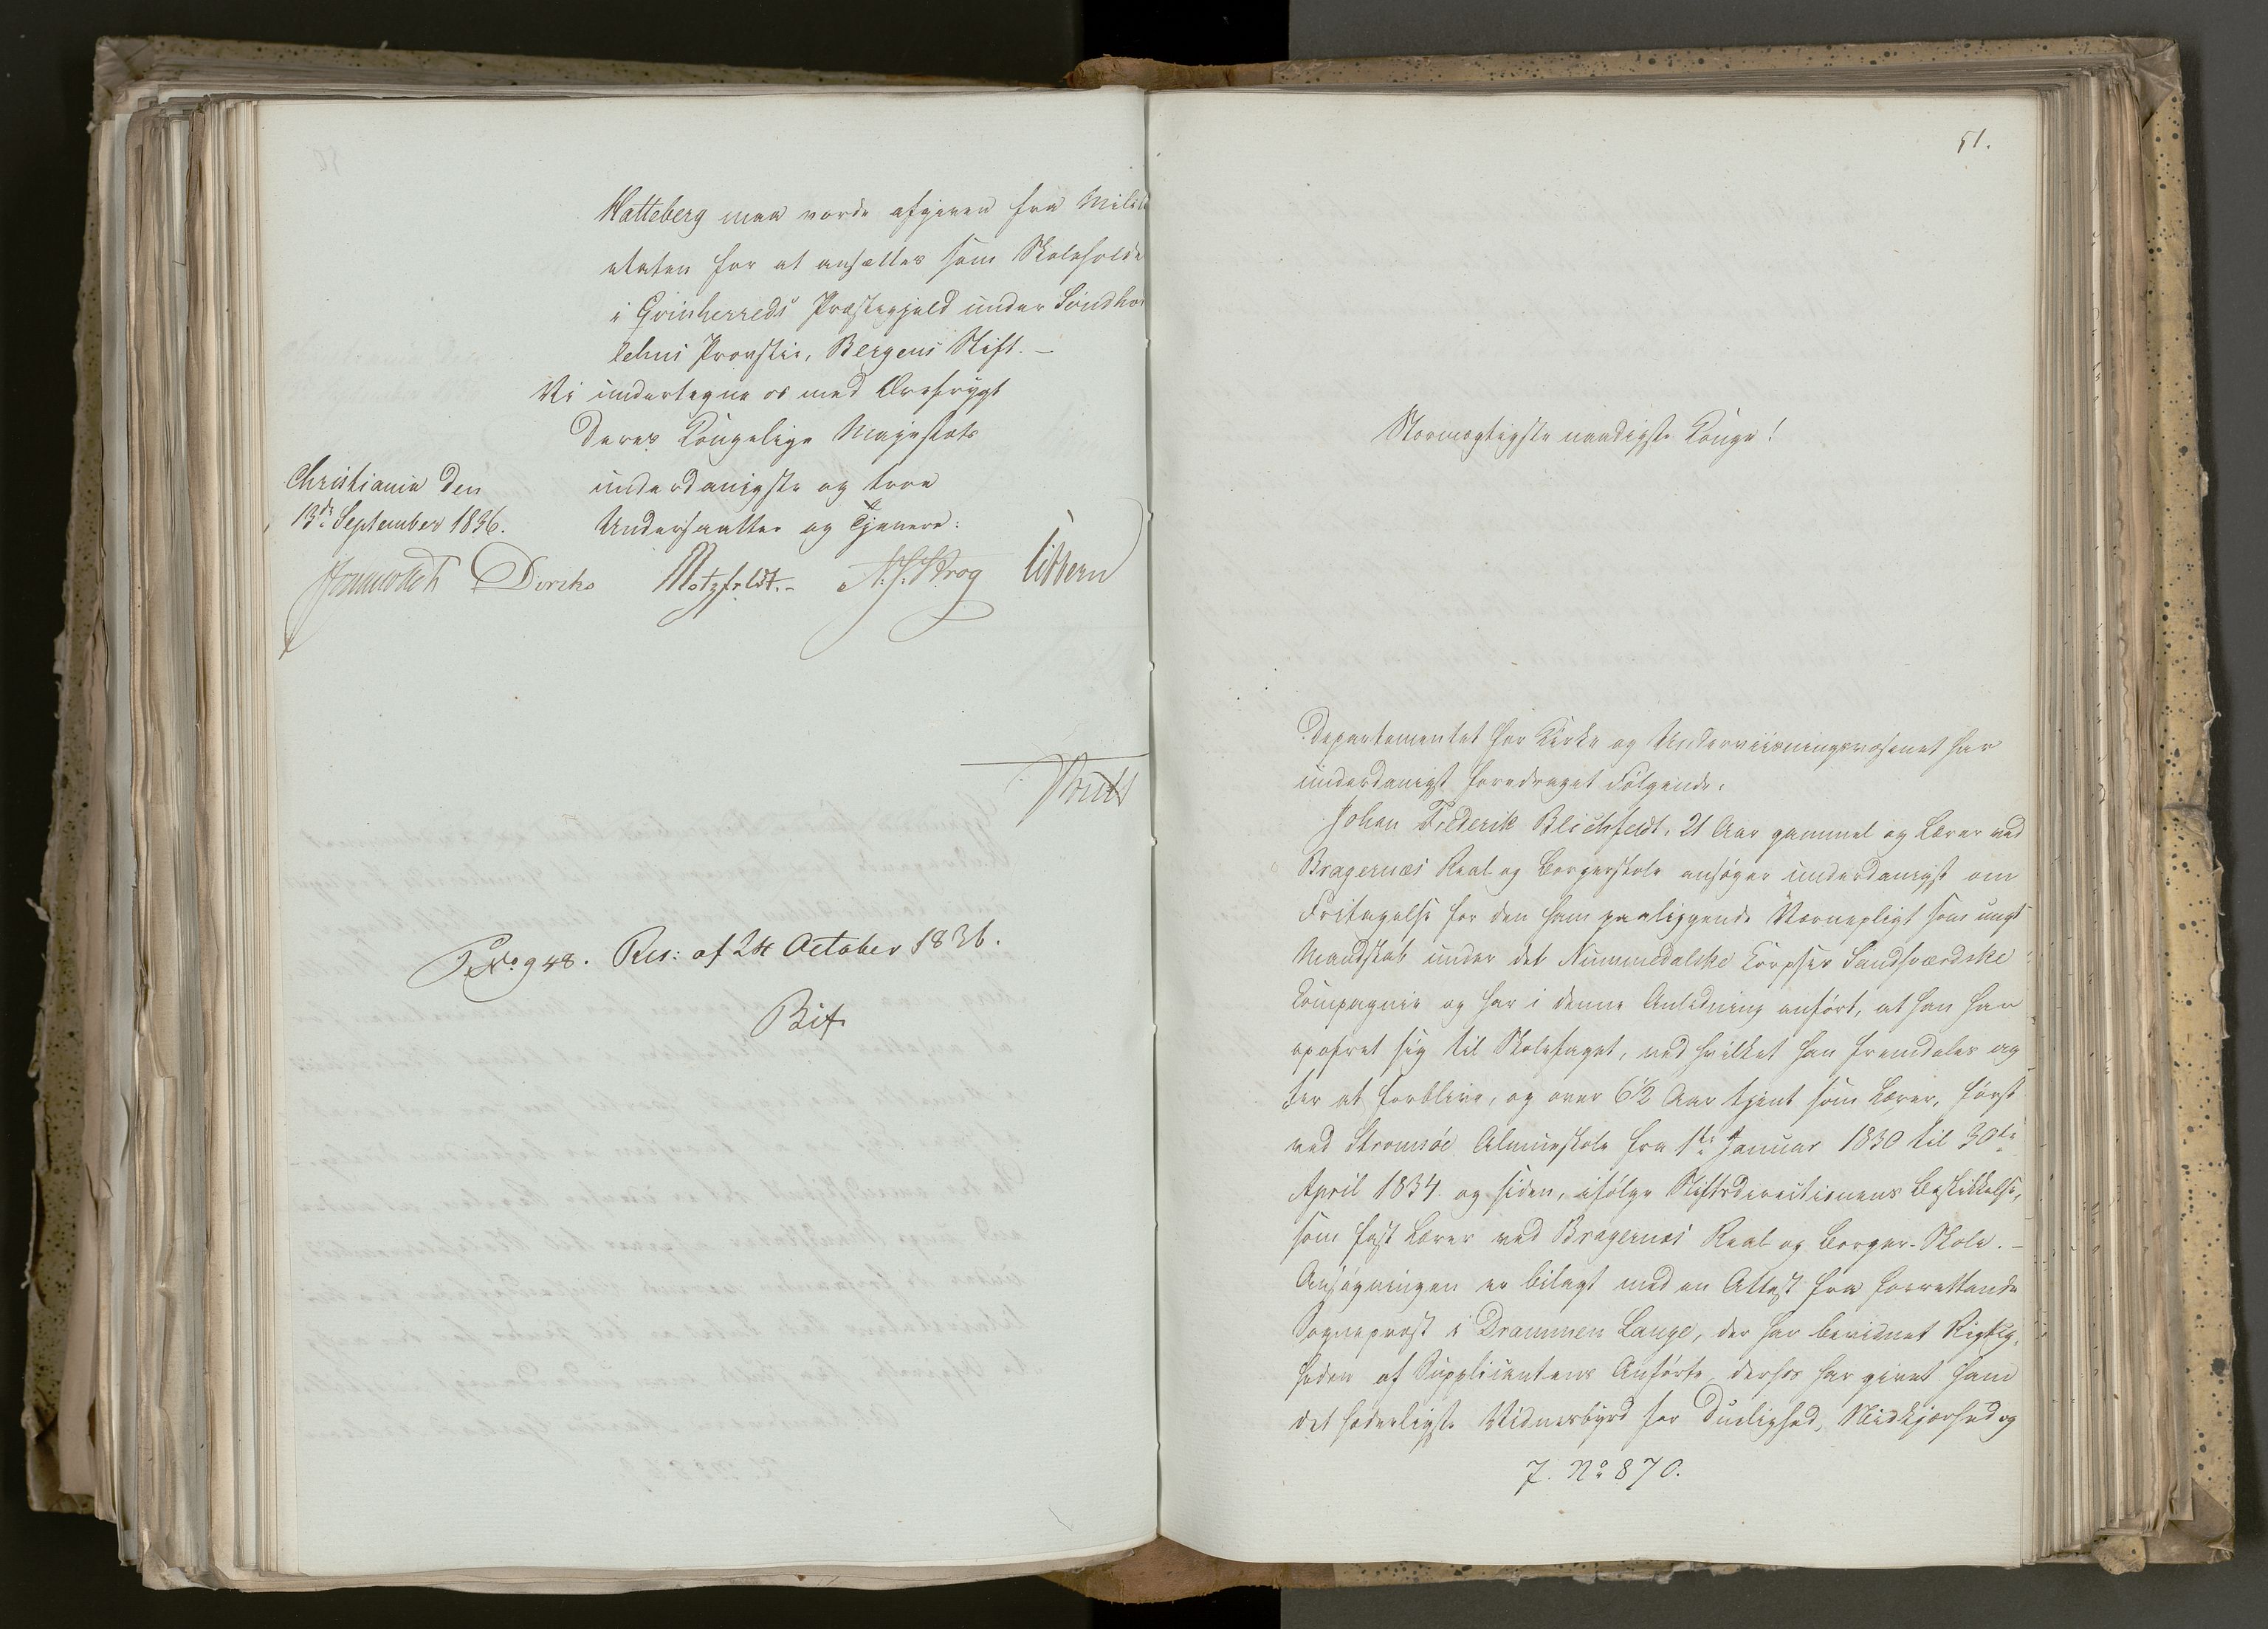 Hatteberg maa vorde afgiven fra Milit
etaten for at ansættes som Skoleholde
i Qvinherreds Præstegjeld under Søndhor
lehns Provstie, Bergens Stift. —
Vi undertegne os med Ærefrygt
Deres Kongelige Majestæts
Christiania den
13de September 1836.
underdanigste og troe
Undersaatter og Tjenere:
Diriks Motzfeldt.- N. J. Krog Vibbern
P. No. 948. Res: af 24 October 1836.
51.
Stormægtigste naadigste Konge!
Departementet for Kirke og Underviisningsvæsenet har
underdanigst foredraget Følgende:
Johan Frederik Blichfeldt, 21 Aar gammel og Lærer ved
Bragernæs Real og Borgerskole ansøger underdanigst om
Fritagelse for den ham paaliggende Værnepligt som ungt
Mandskab under det Nummedalske Korpses Sandsværdske
Compagnie og har i denne Anledning anført, at han har
opofret sig til Skolefaget, ved hvilket han fremdeles ag
ter at forblive, og over 6½ Aar tjent som Lærer, først
ved Strømsøe Almueskole fra 1ste Januar 1830 til 30te
April 1834 og siden, ifølge Stiftsdirectionens Beskikkelse,
som fast Lærer ved Bragernæs Real og Borger-Skole. —
Ansøgningen er bilagt med en Attest fra forrettende
Sogneprest i Drammen Lange, der har bevidnet Rigtig
heden af Supplicantens Anførte, derhos har givet ham
det hæderligste Vidnesbyrd for Duelighed, Nidkjærhed og
7. No 870.